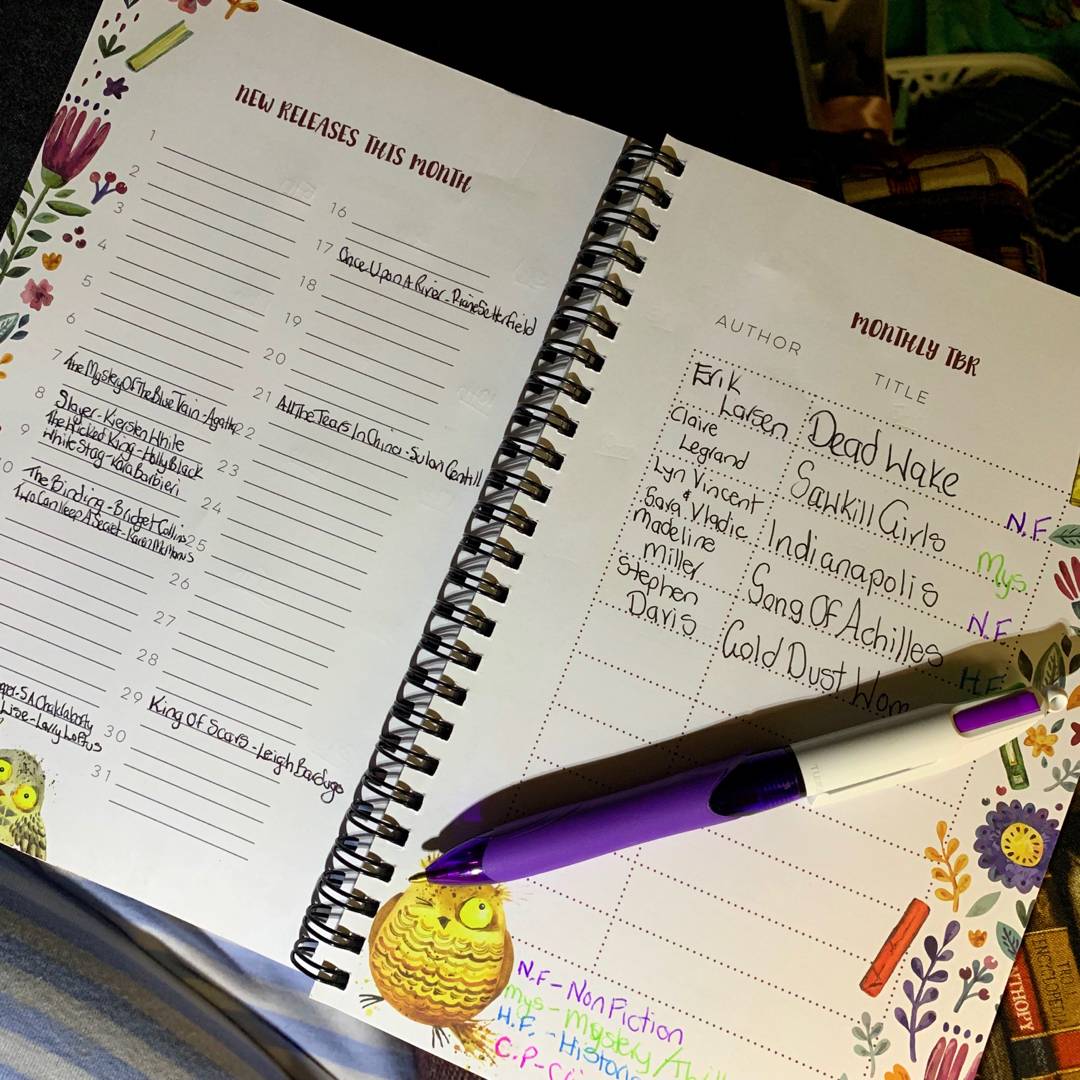 NEW RELEASES THIS MONTH
1
2
3
4
5
6
7 The Mystery Of The Blue Train - Agatha
8 Slayer - Kiersten White
The Wicked King - Holly Black
9 White Stag - Kara Barbieri
10 The Binding - Bridget Collins
Two Can Keep A Secret - Karen McManus
S.A Chakraborty
Lise - Larry Loftus
16
17 Once Upon A River - Diane Setterfield
18
19
20
21 All The Tears In China - Sulari Gentill
22
23
24
25
26
27
28
29 King Of Scars - Leigh Bardugo
30
31
MONTHLY TBR
AUTHOR TITLE
Erik
Larsen Dead Wake N.F
Claire
Legrand Sawkill Girls Mys.
Lyn Vincent
& Sara Vladic Indianapolis N.F.
Madeline
Miller Song Of Achilles H.F.
Stephen
Davis Gold Dust Wom
N.F - Non Fiction
Mys - Mystery /
H.F. -
C.P -
ENCYCLOPEDIA